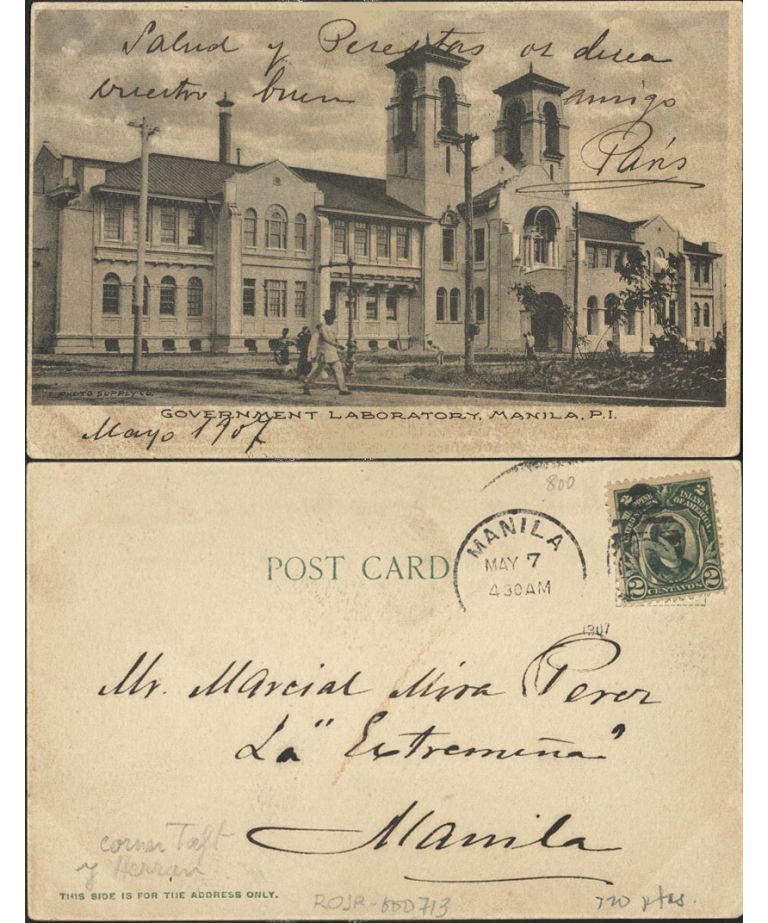 Salud y Pesestas os desea
vuestro buen amigo
París
PHOTO SUPPLY CO.
GOVERNMENT LABORATORY, MANILA, P.I.
Mayo 1907
800
POST CARD
MANILA
MAY 7
430AM
1907
2 PHILIPPINE ISLANDS 2
UNITED STATES OF AMERICA
2 CENTAVOS 2
Mr. Marcial Mira Perez
La "Extremeña"
Manila
corner Taft
y Herran
THIS SIDE IS FOR THE ADDRESS ONLY.
ROJR-000713
720 ptas.